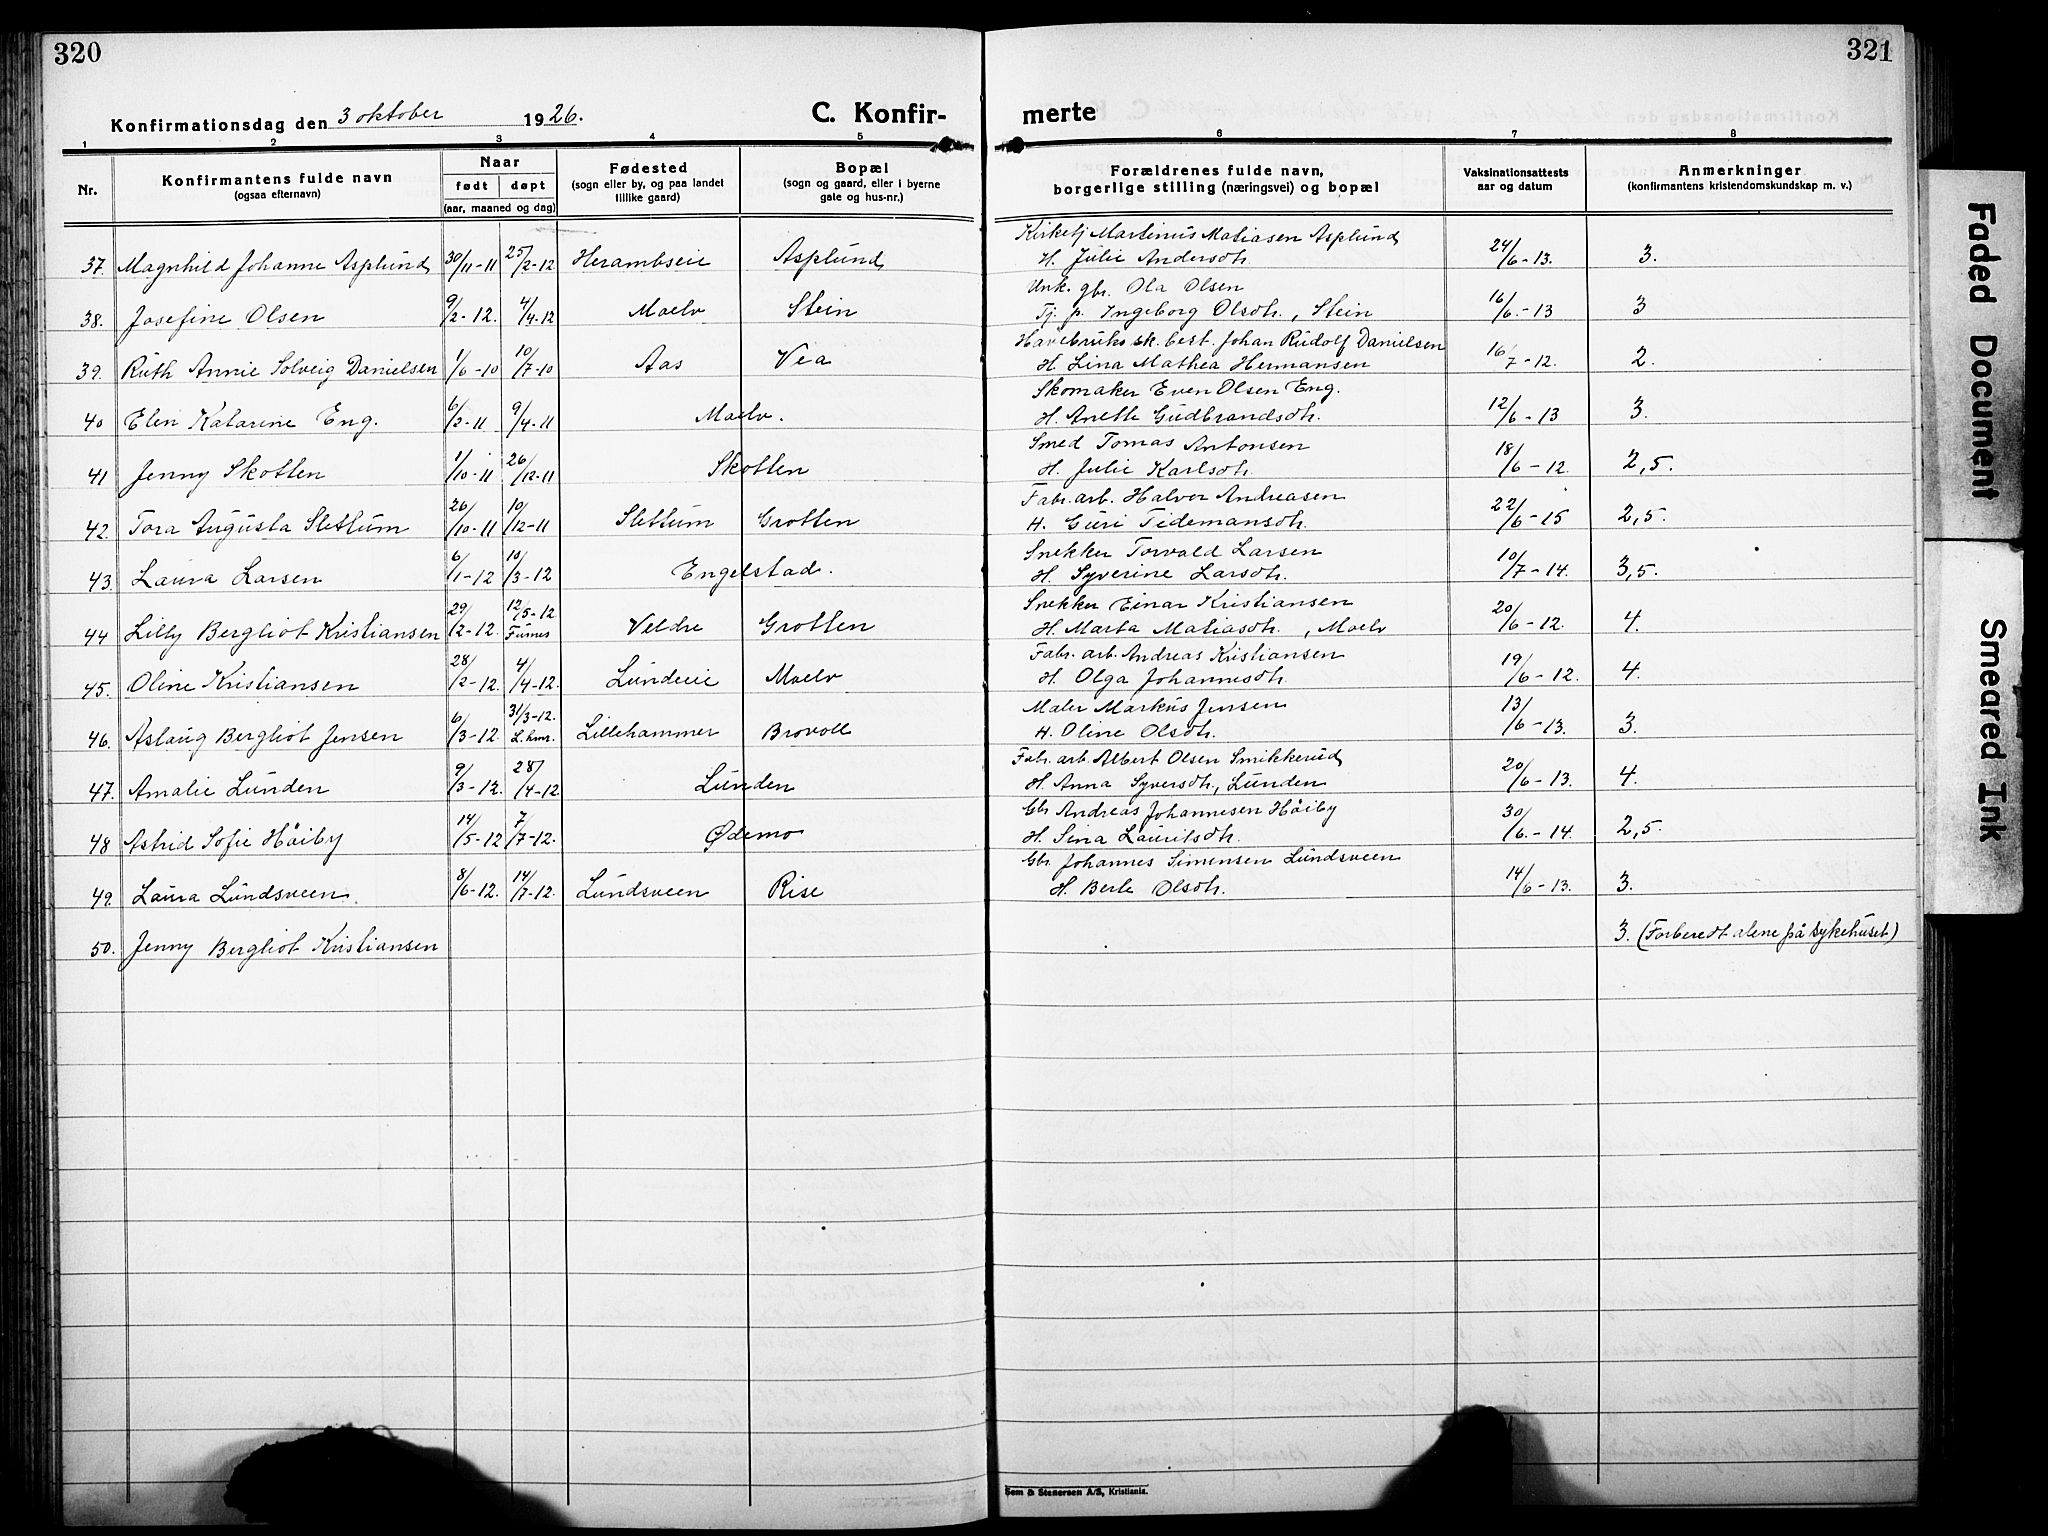 320
Konfirmationsdag den 3 oktober 1926.
C. Konfir-
1 2 3 4 5
Nr.
Konfirmantens fulde navn
(ogsaa efternavn)
Naar
født døpt
(aar, maaned og dag)
Fødested
(sogn eller by, og paa landet
tillike gaard)
Bopæl
(sogn og gaard, eller i byerne
gate og hus-nr.)
37. Magnhild Johanne Asplund 30/11-11 25/2-12 Herambseie Asplund
38. Josefine Olsen 9/2-12. 4/4-12 Moelv Stein
39. Ruth Annie Solveig Danielsen 1/6-10 10/7-10 Aas Vea
40 Elen Katarine Eng. 6/2-11 9/4-11 Moelv.
41 Jenny Skotten 1/10-11 26/12-11 Skotten
42. Tora Augusta Slettum 26/10-11 10/12-11 Slettum Grotten
43. Laura Larsen 6/1-12 10/3-12 Engelstad.
44 Lilly Bergliot Kristiansen 29/2-12. 12/5-12 Furnes Veldre Grotten
45. Oline Kristiansen 28/2-12. 4/4-12. Lundeie Moelv
46. Aslaug Bergliot Jensen 6/3-12. 31/3-12. L.hmr. Lillehammer Brovoll
47. Amalie Lunden 9/3-12. 28/4-12 Lunden
48 Astrid Sofie Håiby 14/5-12 7/7-12. Ødemo
49. Laura Lundsveen. 8/6-12. 14/7-12. Lundsveen Rise
50. Jenny Bergliot Kristiansen
321
merte
6 7 8
Forældrenes fulde navn,
borgerlige stilling (næringsvei) og bopæl
Vaksinationsattests
aar og datum
Anmerkninger
(konfirmantens kristendomskundskap m. v.)
Kirketj Martinus Matiasen Asplund
H. Julie Andersdtr. 24/6-13. 3.
Unk. gbr. Ola Olsen
Tj. p. Ingeborg Olsdtr., Stein 16/6.-13 3
Havebruks sk. best. Johan Rudolf Danielsen
H Lina Mathea Hermansen 16/7-12. 2.
Skomaker Even Olsen Eng.
H. Anette Gudbrandsdtr. 12/6-13 3.
Smed Tomas Antonsen
H. Julie Karlsdtr. 18/6-12. 2,5.
Fabr. arb. Halvor Andreasen
H. Guri Tidemansdtr. 22/6-15 2,5.
Snekker Torvald Larsen
H. Syverine Larsdtr. 10/7-14. 3,5.
Snekker Einar Kristiansen
H. Marta Matiasdtr., Moelv 20/6-12. 4.
Fabr. arb. Andreas Kristiansen
H. Olga Johannesdtr. 19/6-12. 4.
Maler Markus Jensen
H. Oline Olsdtr. 13/6-13. 3.
Fabr. arb. Albert Olsen Smikkerud
H. Anna Syversdtr., Lunden 20/6-13. 4.
Gbr Andreas Johannesen Håiby
H. Sina Lauritsdtr. 30/6.-14. 2,5.
Gbr. Johannes Simensen Lundsveen
H. Berte Olsdtr. 14/6-13. 3.
3. (Forberedt alene på sykehuset)
Sem & Stenersen A/S, Kristiania.
Faded Document
Smeared Ink